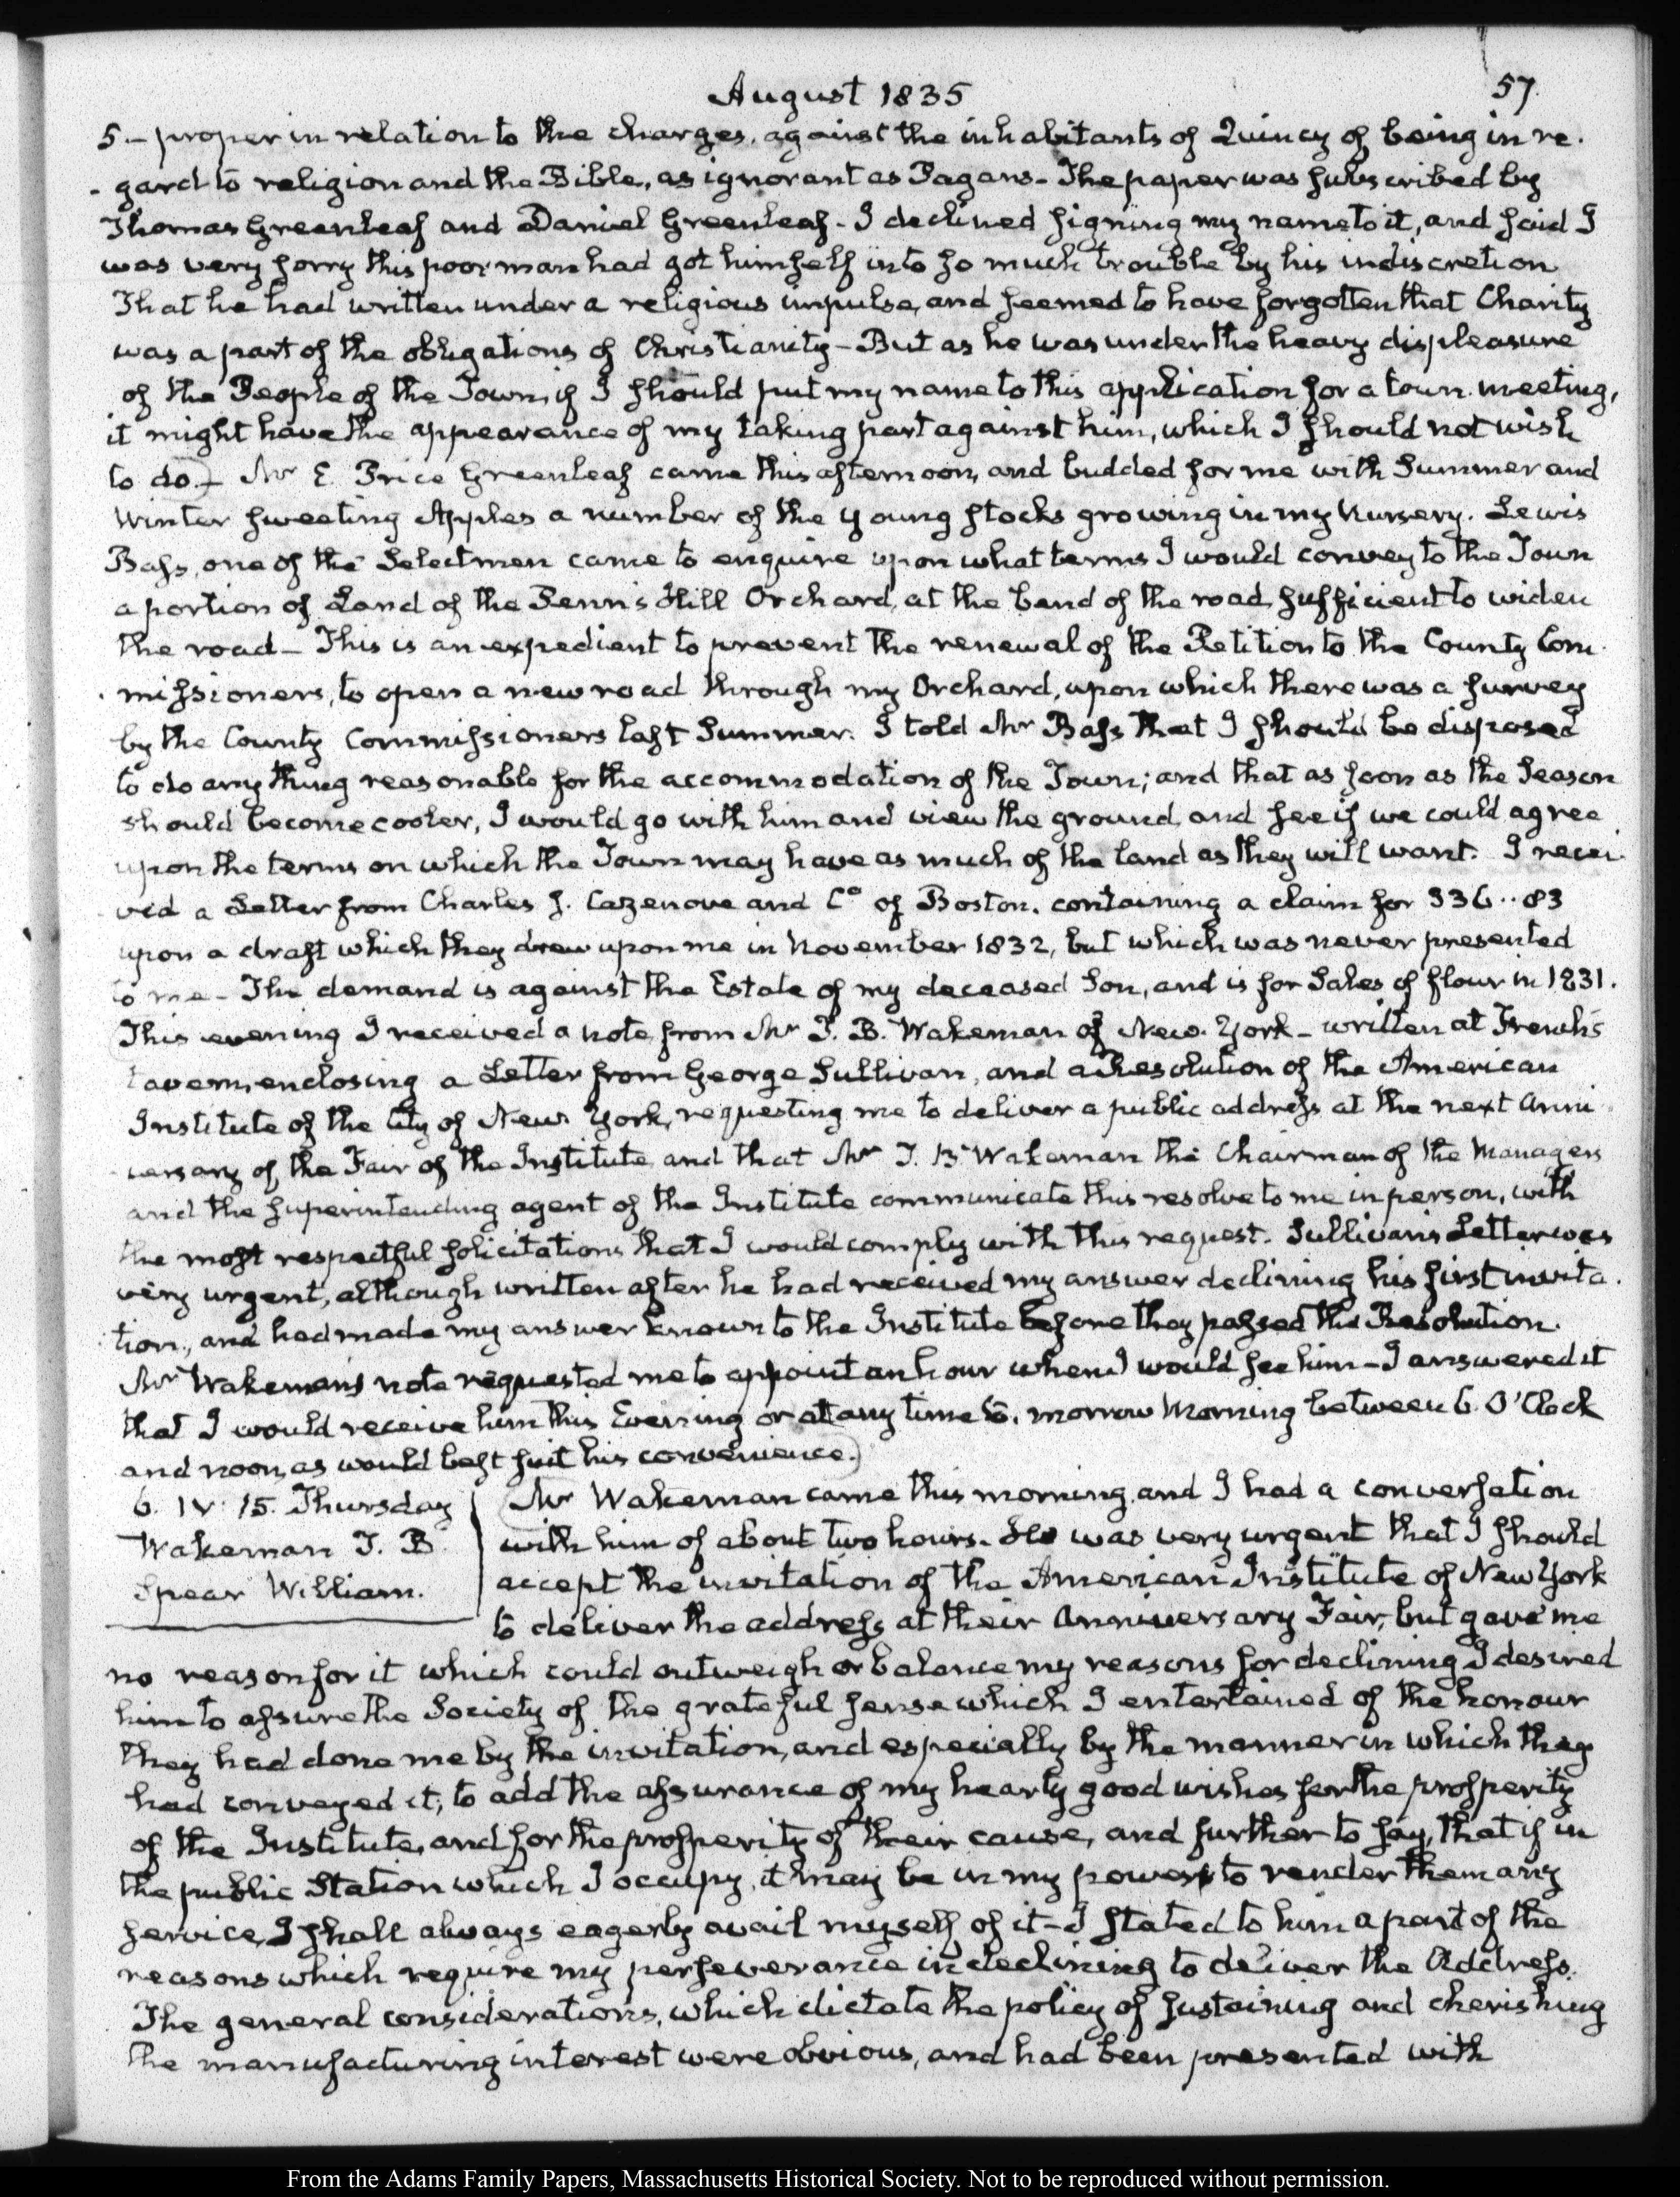 August 1835
57.
5.- proper in relation to the charges, against the inhabitants of Quincy of being in re-
gard to religion and the Bible, as ignorant as Pagans- The paper was subscribed by
Thomas Greenleaf and Daniel Greenleaf- I declined signing my name to it, and said I
was very sorry this poor man had got himself into so much trouble by his indiscretion
That he had written under a religious impulse, and seemed to have forgotten that Charity
was a part of the obligations of Christianity- But as he was under the heavy displeasure
of the People of the Town, if I should put my name to this application for a town-meeting,
it might have the appearance of my taking part against him, which I should not wish
to do.- Mr E. Price Greenleaf came this afternoon, and budded for me with Summer and
Winter sweeting Apples a number of the young stocks growing in my Nursery. Lewis
Bass, one of the Selectmen came to enquire upon what terms I would convey to the Town
a portion of Land of the Penn's Hill Orchard, at the bend of the road sufficient to widen
the road- This is an expedient to prevent the renewal of the Petition to the County Com-
missioners, to open a new road through my Orchard, upon which there was a survey
by the County Commissioners last Summer. I told Mr Bass that I should be disposed
to do any thing reasonable for the accommodation of the Town; and that as soon as the Season
should become cooler, I would go with him and view the ground and see if we could agree
upon the terms on which the Town may have as much of the land as they will want. I recei-
ved a Letter from Charles J. Cazenove and Co of Boston, containing a claim for 336..83
upon a draft which they drew upon me in November 1832, but which was never presented
to me- The demand is against the Estate of my deceased Son, and is for Sales of flour in 1831.
This evening I received a note from Mr T. B. Wakeman of New-York- written at French's
tavern, enclosing a Letter from George Sullivan, and a Resolution of the American
Institute of the City of New-York, requesting me to deliver a public address at the next Anni-
versary of the Fair of the Institute and that Mr T. B. Wakeman the Chairman of the Managers
and the superintending agent of the Institute communicate this resolve to me in person, with
the most respectful solicitations that I would comply with this request. Sullivan's Letter was
very urgent, although written after he had received my answer declining his first invita-
tion, and had made my answer known to the Institute before they passed the Resolution.
Mr Wakeman's note requested me to appoint an hour when I would see him- I answered it
that I would receive him this Evening or at any time to-morrow Morning between 6. O'Clock
and noon, as would best suit his convenience.
6. IV: 15. Thursday
Wakeman T. B.
Spear William.
Mr Wakeman came this morning and I had a conversation
with him of about two hours. He was very urgent that I should
accept the invitation of the American Institute of New York
to deliver the address at their Anniversary Fair, but gave me
no reason for it which could outweigh or balance my reasons for declining I desired
him to assure the Society of the grateful sense which I entertained of the honour
they had done me by the invitation, and especially by the manner in which they
had conveyed it; to add the assurance of my hearty good wishes for the prosperity
of the Institute, and for the prosperity of their cause, and further to say, that if in
the public Station which I occupy, it may be in my power to render them any
service, I shall always eagerly avail myself of it- I stated to him a part of the
reasons which require my perseverance in declining to deliver the Address.
The general considerations, which dictate the policy of sustaining and cherishing
the manufacturing interest were obvious, and had been presented with
From the Adams Family Papers, Massachusetts Historical Society. Not to be reproduced without permission.